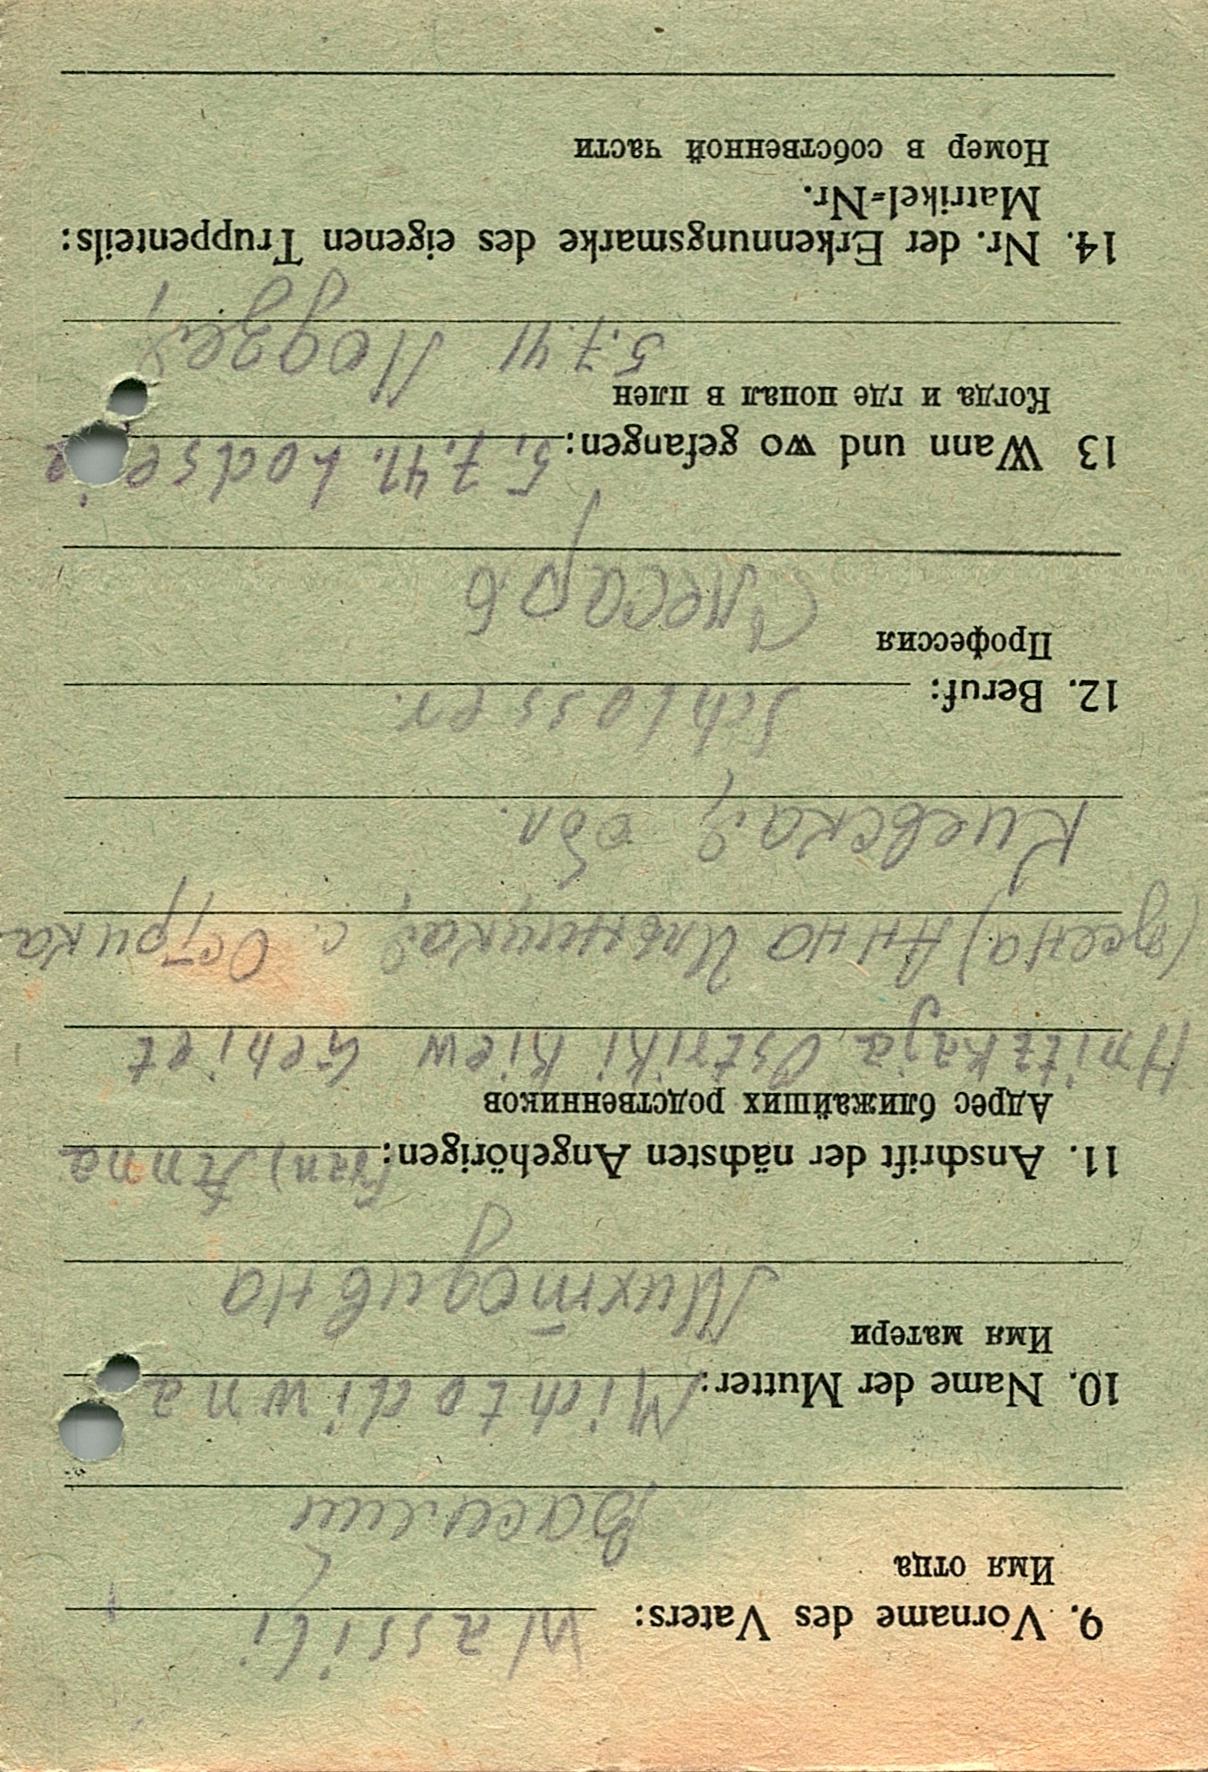 9. Vorname des Vaters: Wassili
Имя отца
Василий
10. Name der Mutter: Michtodiwna
Имя матери
Михтодивна
11. Anschrift der nächsten Angehörigen: Frau) Anna
Адрес ближайших родственников
Hnitzkaja, Ostriki Kiew Gebiet
(жена) Анна с. Острика
Киевская, обл.
12. Beruf: Schlosser.
Профессия
Слесарь
13 Wann und wo gefangen: 5.7.41. Lodseie
Когда и где попал в плен
5.7.41 Лодзея
14. Nr. der Erkennungsmarke des eigenen Truppenteils:
Matrikel-Nr.
Номер в собственной части